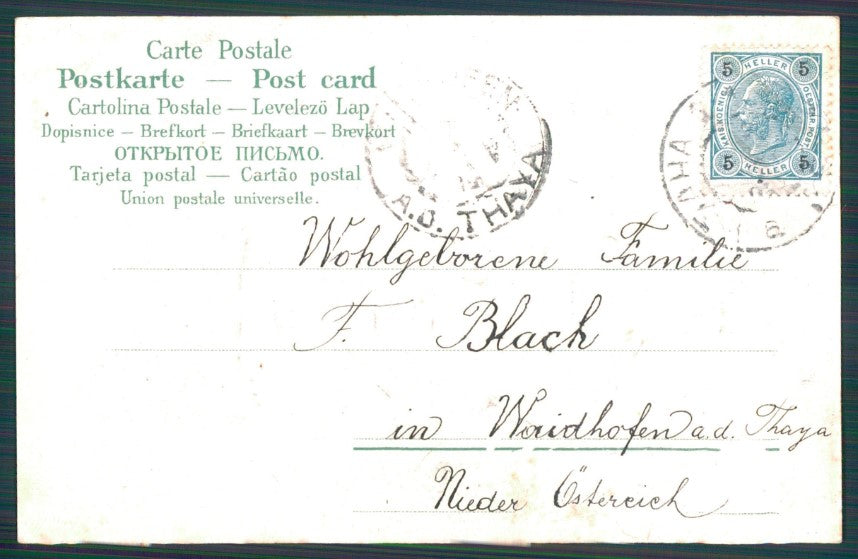 Carte Postale
Postkarte — Post card
Cartolina Postale — Levelezö Lap
Dopisnice — Brefkort — Briefkaart — Brevkort
ОТКРЫТОЕ ПИСЬМО.
Tarjeta postal — Cartão postal
Union postale universelle.
A.D. THAYA
5 HELLER 5
5 HELLER 5
Wohlgeborene Familie
F. Blach
in Waidhofen a.d. Thaya
Nieder Östereich